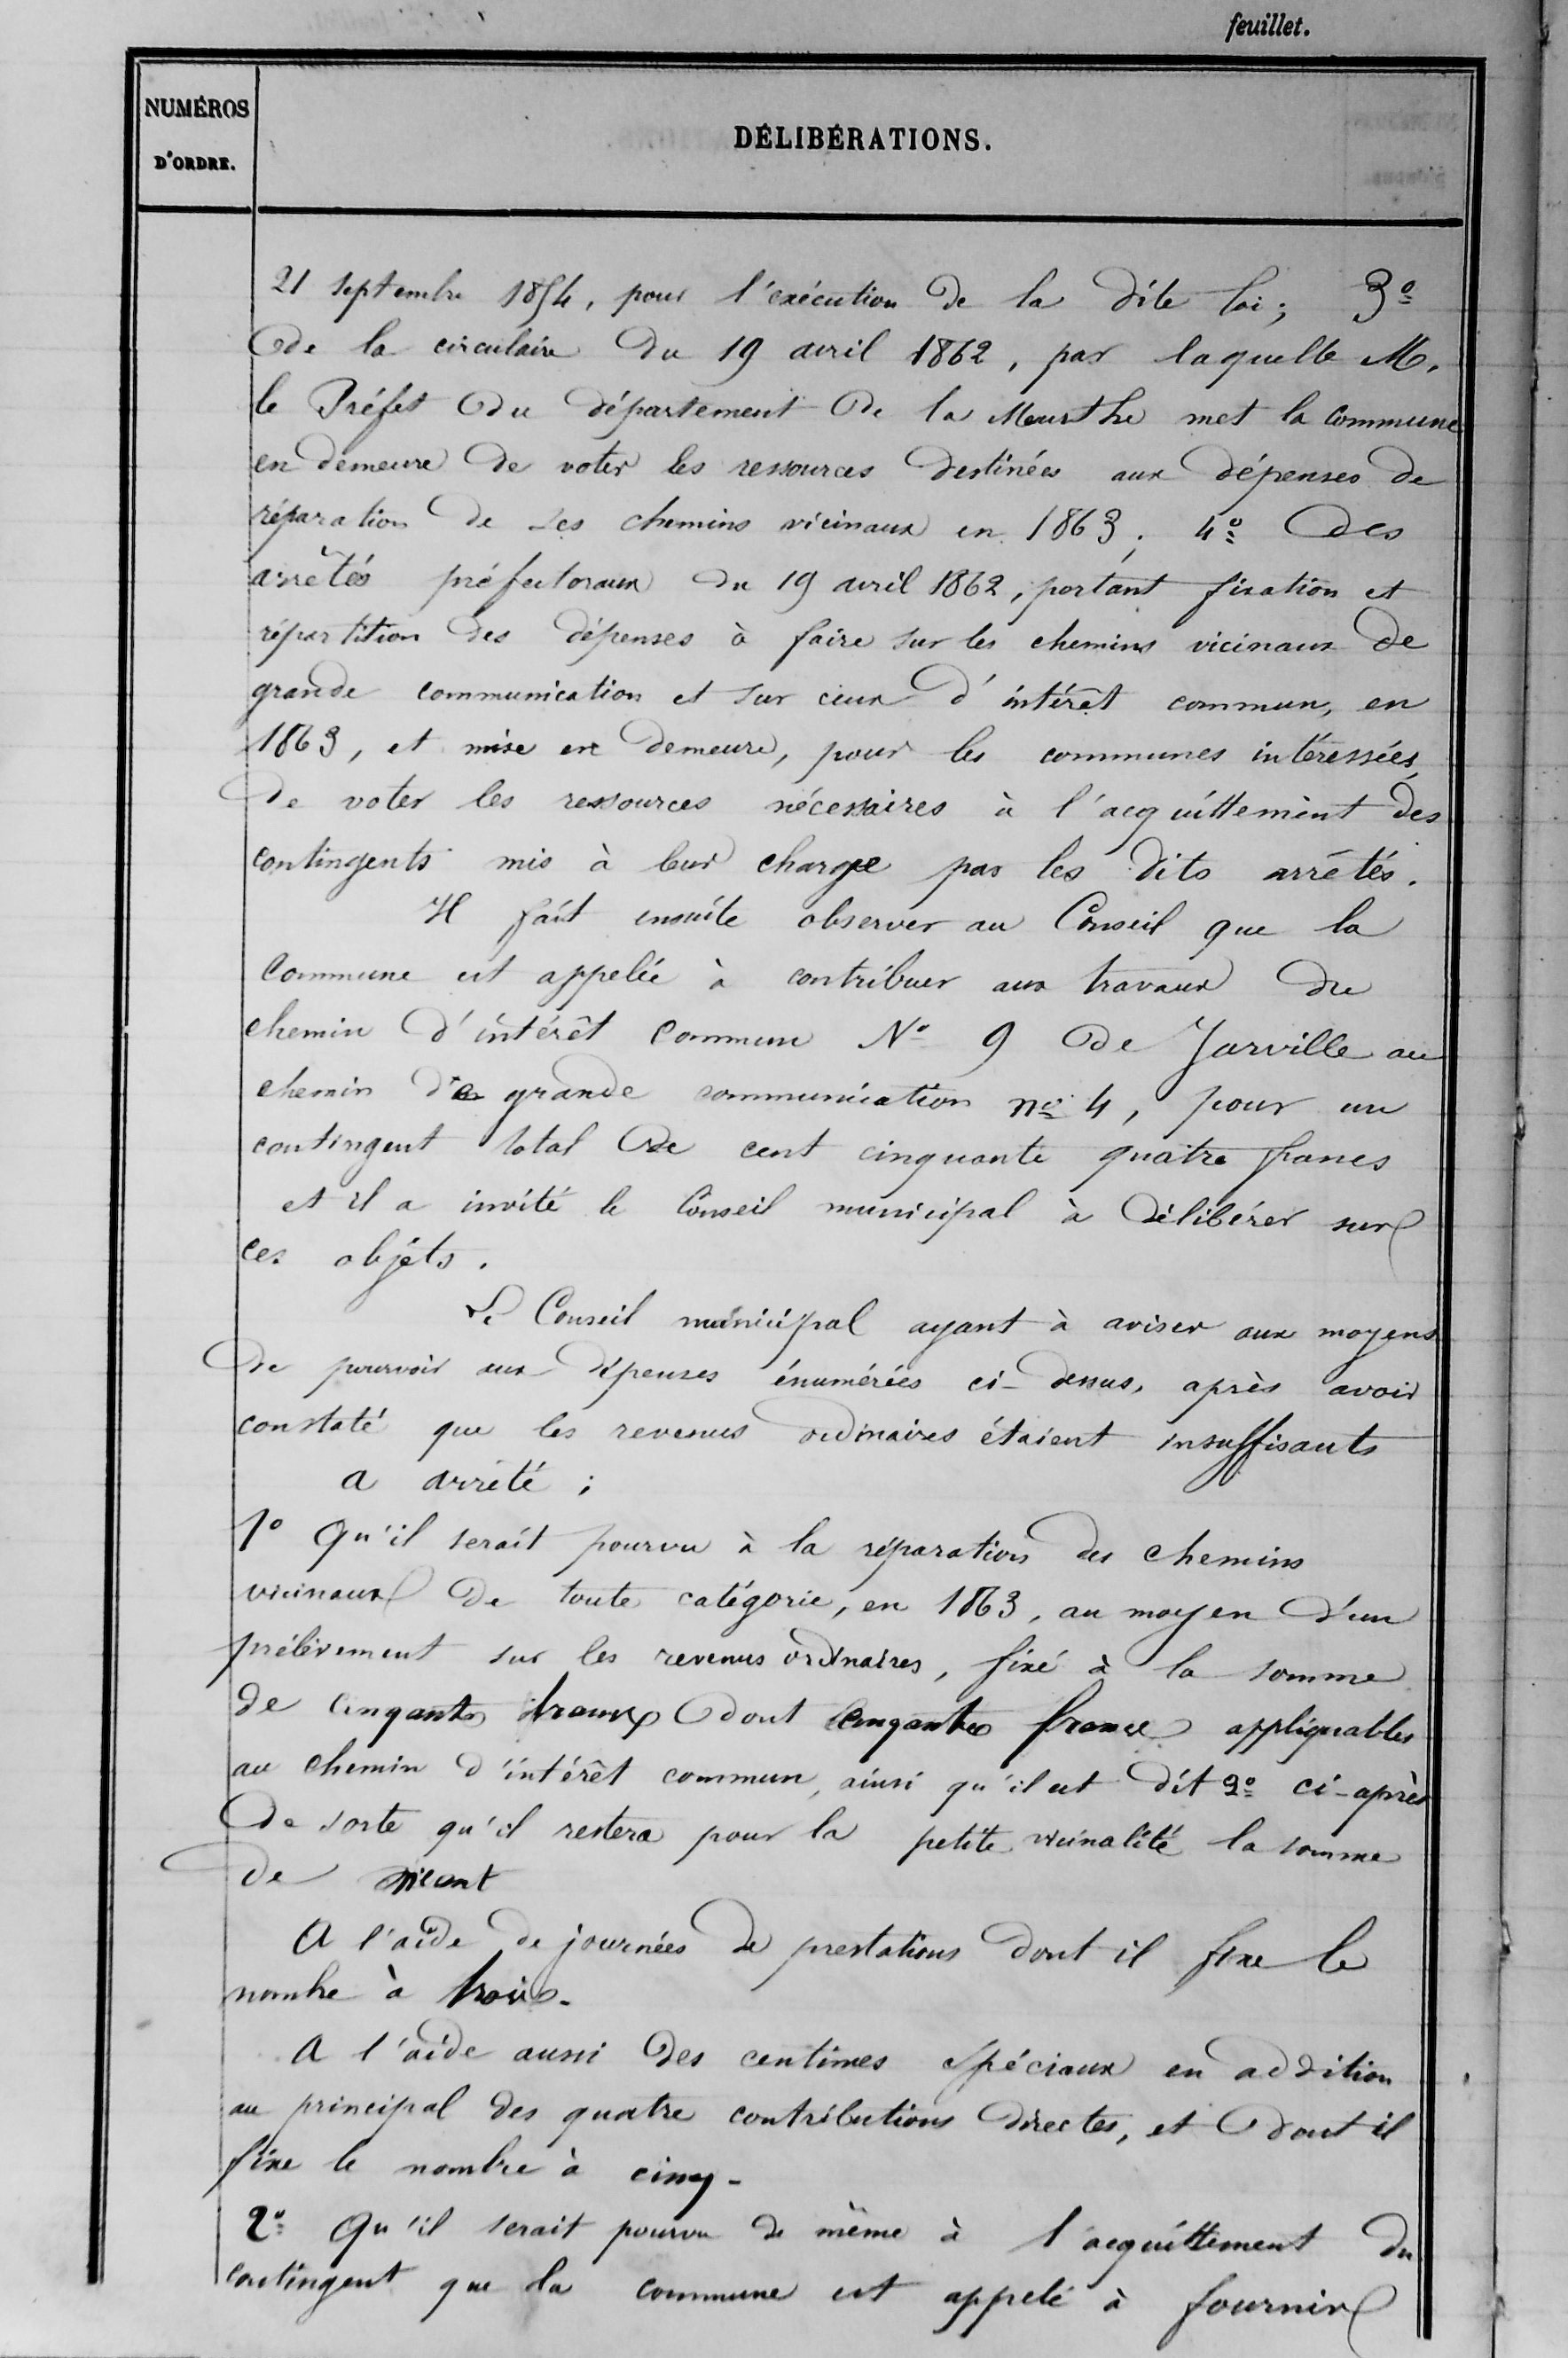 feuillet.
NUMÉROS
D'ORDRE.
DÉLIBÉRATIONS.
21 septembre 1854, pour l'exécution de la dite loi; 3º
de la circulaire du 19 avril 1862, par laquelle M.
le Préfet du département de la Meurthe met la commune
en demeure de voter les ressources destinées aux dépenses de
réparation de ses chemins vicinaux en 1863; 4º des
arrêtés préfectoraux du 19 avril 1862, portant fixation et
répartition des dépenses à faire sur les chemins vicinaux de
grande communication et sur ceux d'intérêt commun, en
1863, et mise en demeure, pour les communes intéressées,
de voter les ressources nécessaires à l'acquittement des
contingents mis à leur charge par les dits arrêtés.
Il fait ensuite observer au Conseil que la
Commune est appelée à contribuer aux travaux du
chemin d'intérêt commun Nº 9 de Jarville au
chemin de grande communication nº 4, pour un
contingent total de cent cinquante quatre francs
et il a invité le Conseil municipal à délibérer sur
ces objets.
Le Conseil municipal ayant à aviser aux moyens
de pourvoir aux dépenses énumérées ci-dessus, après avoir
constaté que les revenus ordinaires étaient insuffisants
a arrêté;
1º Qu'il serait pourvu à la réparation des chemins
vicinaux de toute catégorie, en 1863, au moyen d'un
prélèvement sur les revenus ordinaires, fixé à la somme
de cinqante francs dont cinqante francs appliquables
au chemin d'intérêt commun, ainsi qu'il est dit 2º ci-après
de sorte qu'il restera pour la petite vicinalité la somme
de
A l'aide de journées de prestations dont il fixe le
nombre à trois.
A l'aide aussi des centimes spéciaux en addition
au principal des quatre contributions directes, et dont il
fixe le nombre à cinq.
2º Qu'il serait pourvu de même à l'acquittement du
contingent que la commune est appelé à fournir